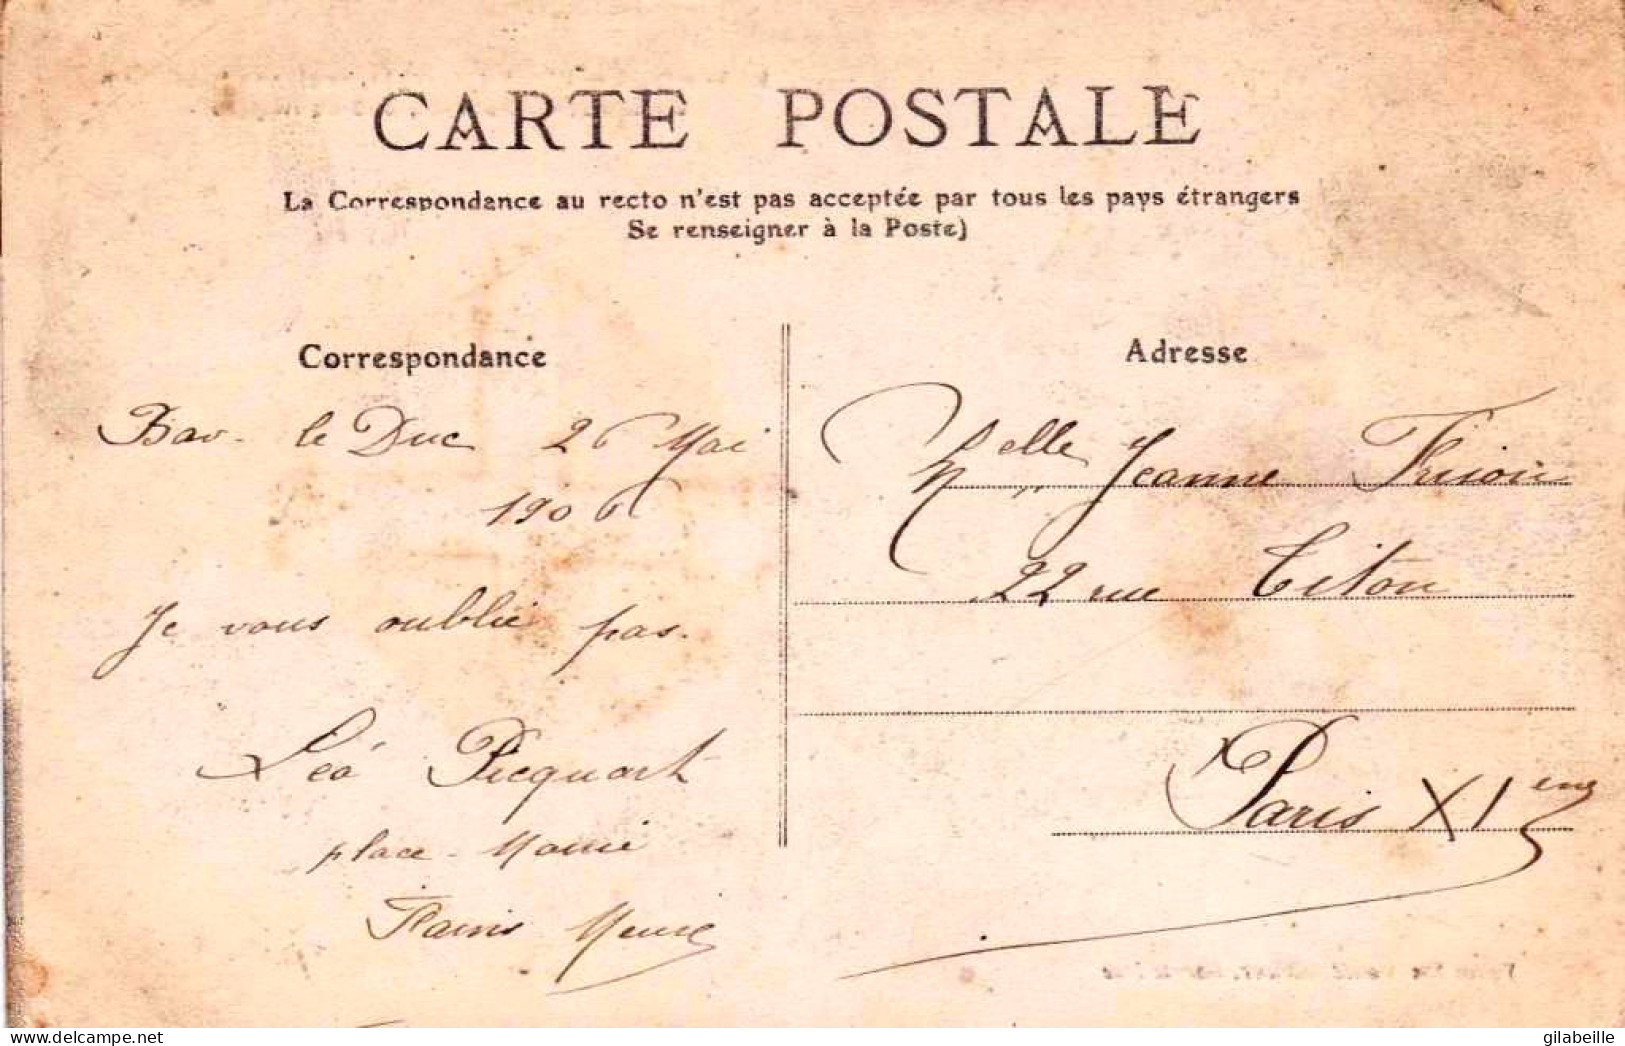 CARTE POSTALE
La Correspondance au recto n'est pas acceptée par tous les pays étrangers
Se renseigner à la Poste)
Correspondance
Bar-le Duc 26 Mai
1906
Je vous oublie pas.
Léa Picquart
place
Meuse
Adresse
Melle Jeanne
22 rue Titon
Paris XIeme
www.delcampe.net
gilabeille